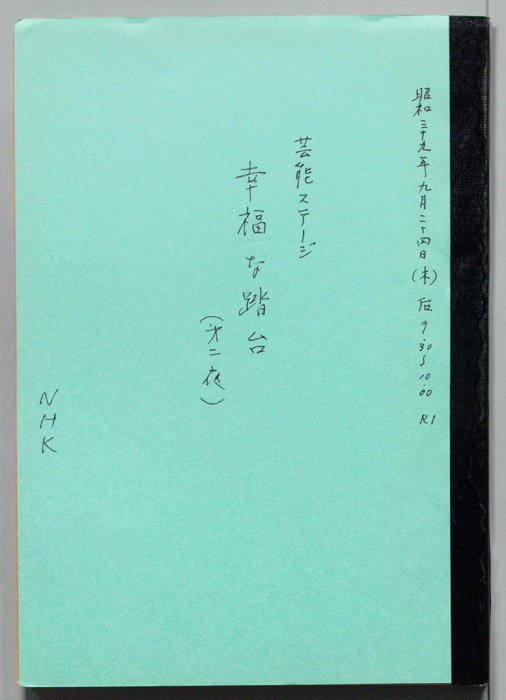 昭和三十九年九月二十四日(木)后9.30〜10.00 R1
芸能ステージ
幸福な踏台
(才二夜)
NHK